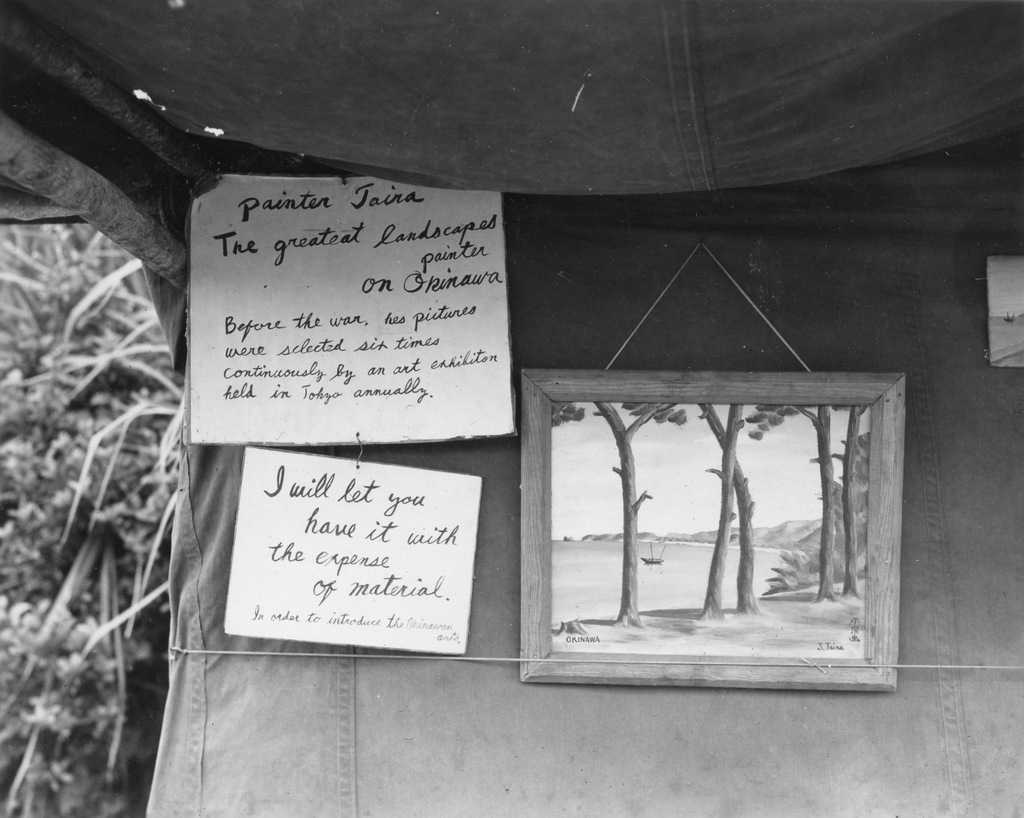 painter Taira
The greateat landscapes
painter
on Okinawa
Before the war, hes pictures
were selected six times
continuously by an art exhibiton
held in Tokyo annually.
I will let you
have it with
the expense
of material.
In order to introduce the Okinawan
arts.
OKINAWA
S. Taira